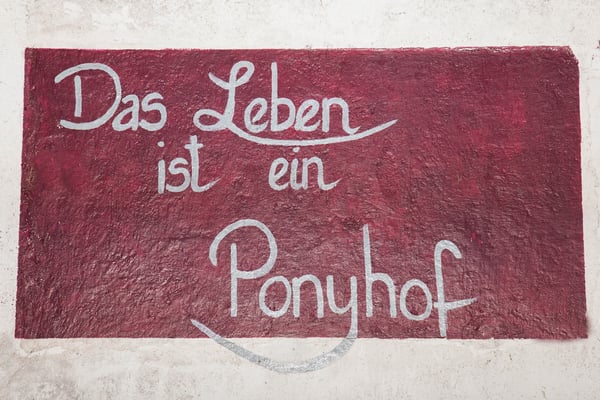 Das Leben
ist ein
Ponyhof